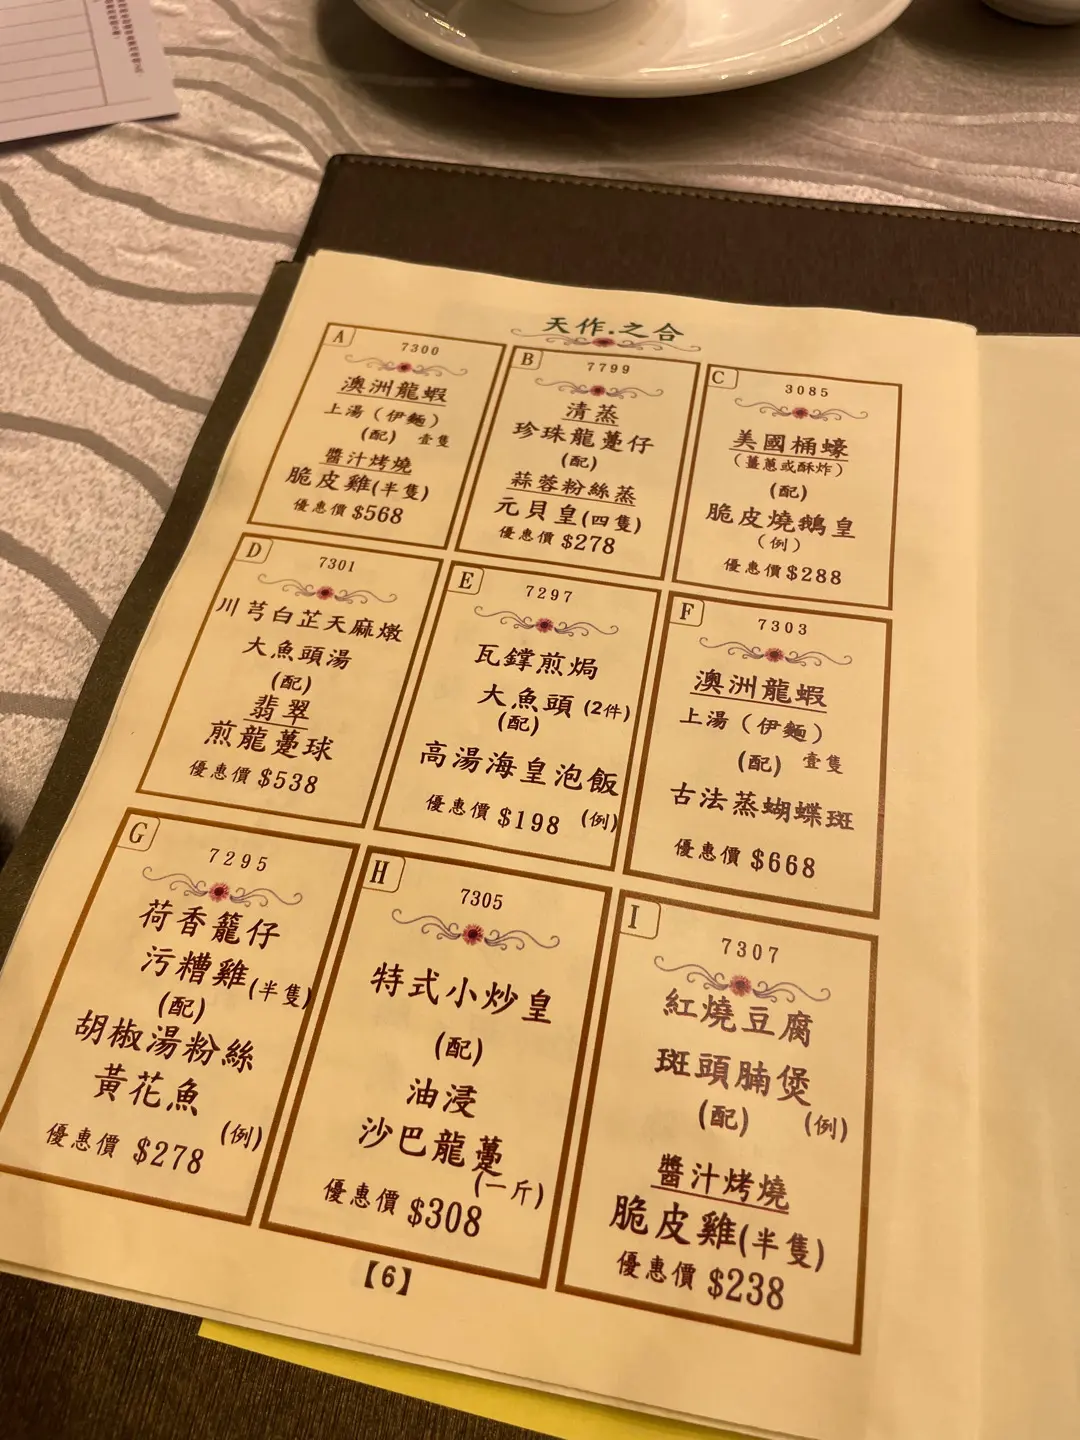 天作.之合
A
7300
澳洲龍蝦
上湯（伊麵）
(配) 壹隻
醬汁烤燒
脆皮雞(半隻)
優惠價 $568
B
7799
清蒸
珍珠龍躉仔
(配)
蒜蓉粉絲蒸
元貝皇(四隻)
優惠價 $278
C
3085
美國桶蠔
（薑蔥或酥炸）
(配)
脆皮燒鵝皇
（例）
優惠價 $288
D
7301
川芎白芷天麻燉
大魚頭湯
(配)
翡翠
煎龍躉球
優惠價 $538
E
7297
瓦鐣煎焗
大魚頭 (2件)
(配)
高湯海皇泡飯
優惠價 $198 (例)
F
7303
澳洲龍蝦
上湯（伊麵）
(配) 壹隻
古法蒸蝴蝶斑
優惠價 $668
G
7295
荷香籠仔
污糟雞(半隻)
(配)
胡椒湯粉絲
黃花魚
(例)
優惠價 $278
H
7305
特式小炒皇
(配)
油浸
沙巴龍躉
(一斤)
優惠價 $308
I
7307
紅燒豆腐
斑頭腩煲
(配) (例)
醬汁烤燒
脆皮雞(半隻)
優惠價 $238
【6】